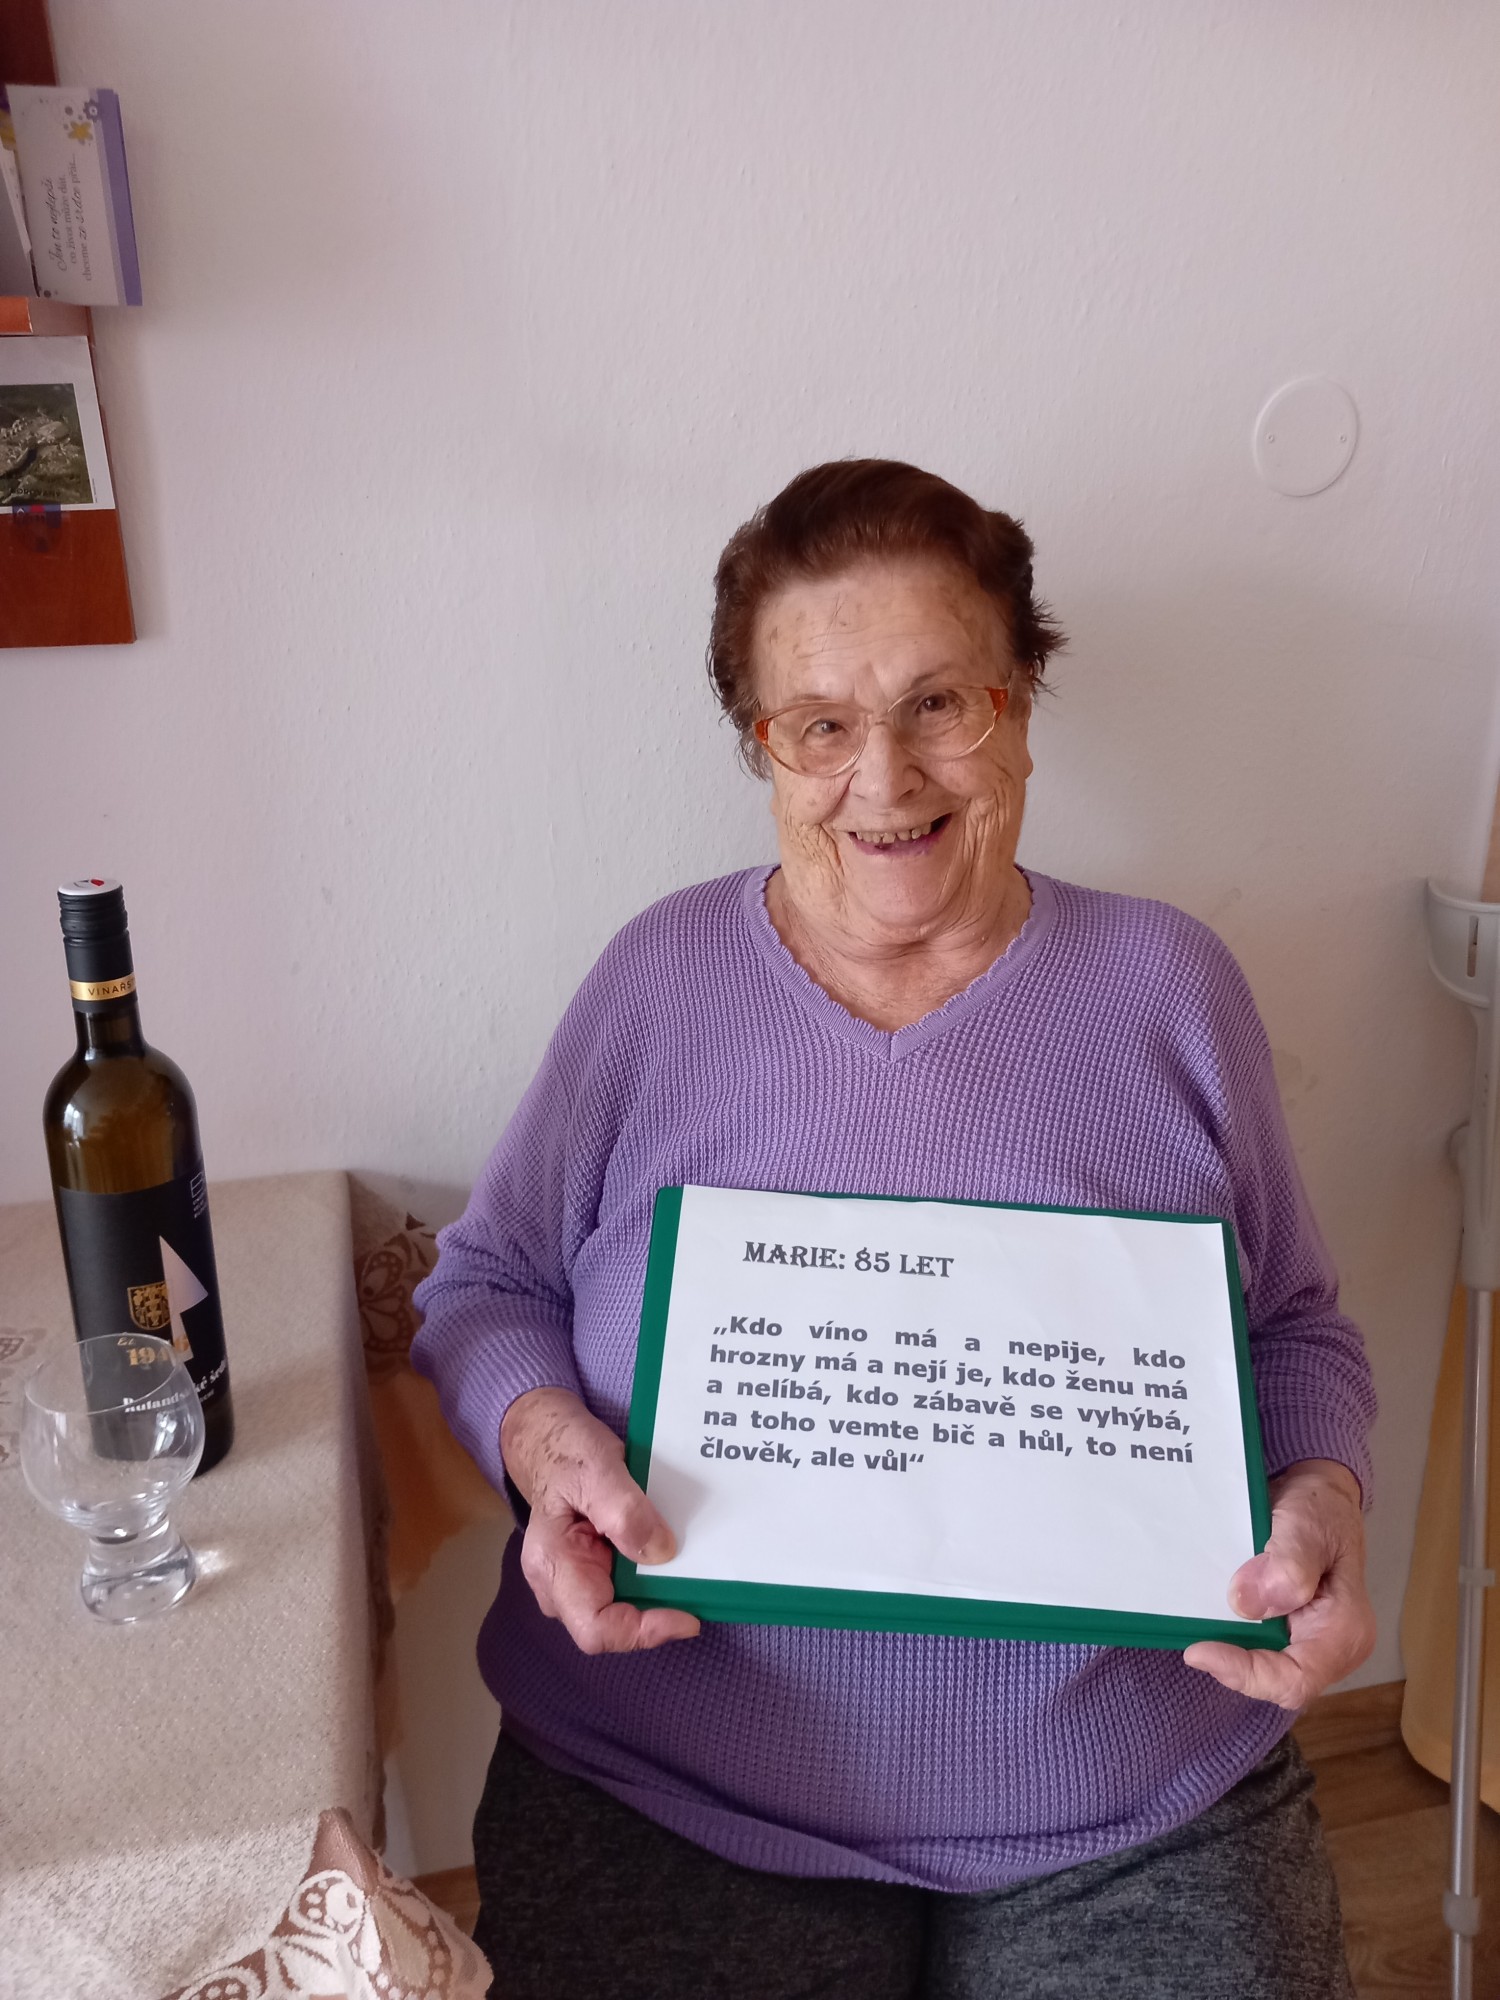 Jen to nejlepší
co život může dát,
chceme ze srdce přát...
VINAŘS
MARIE: 85 LET
„Kdo víno má a nepije, kdo
hrozny má a nejí je, kdo ženu má
a nelíbá, kdo zábavě se vyhýbá,
na toho vemte bič a hůl, to není
člověk, ale vůl“